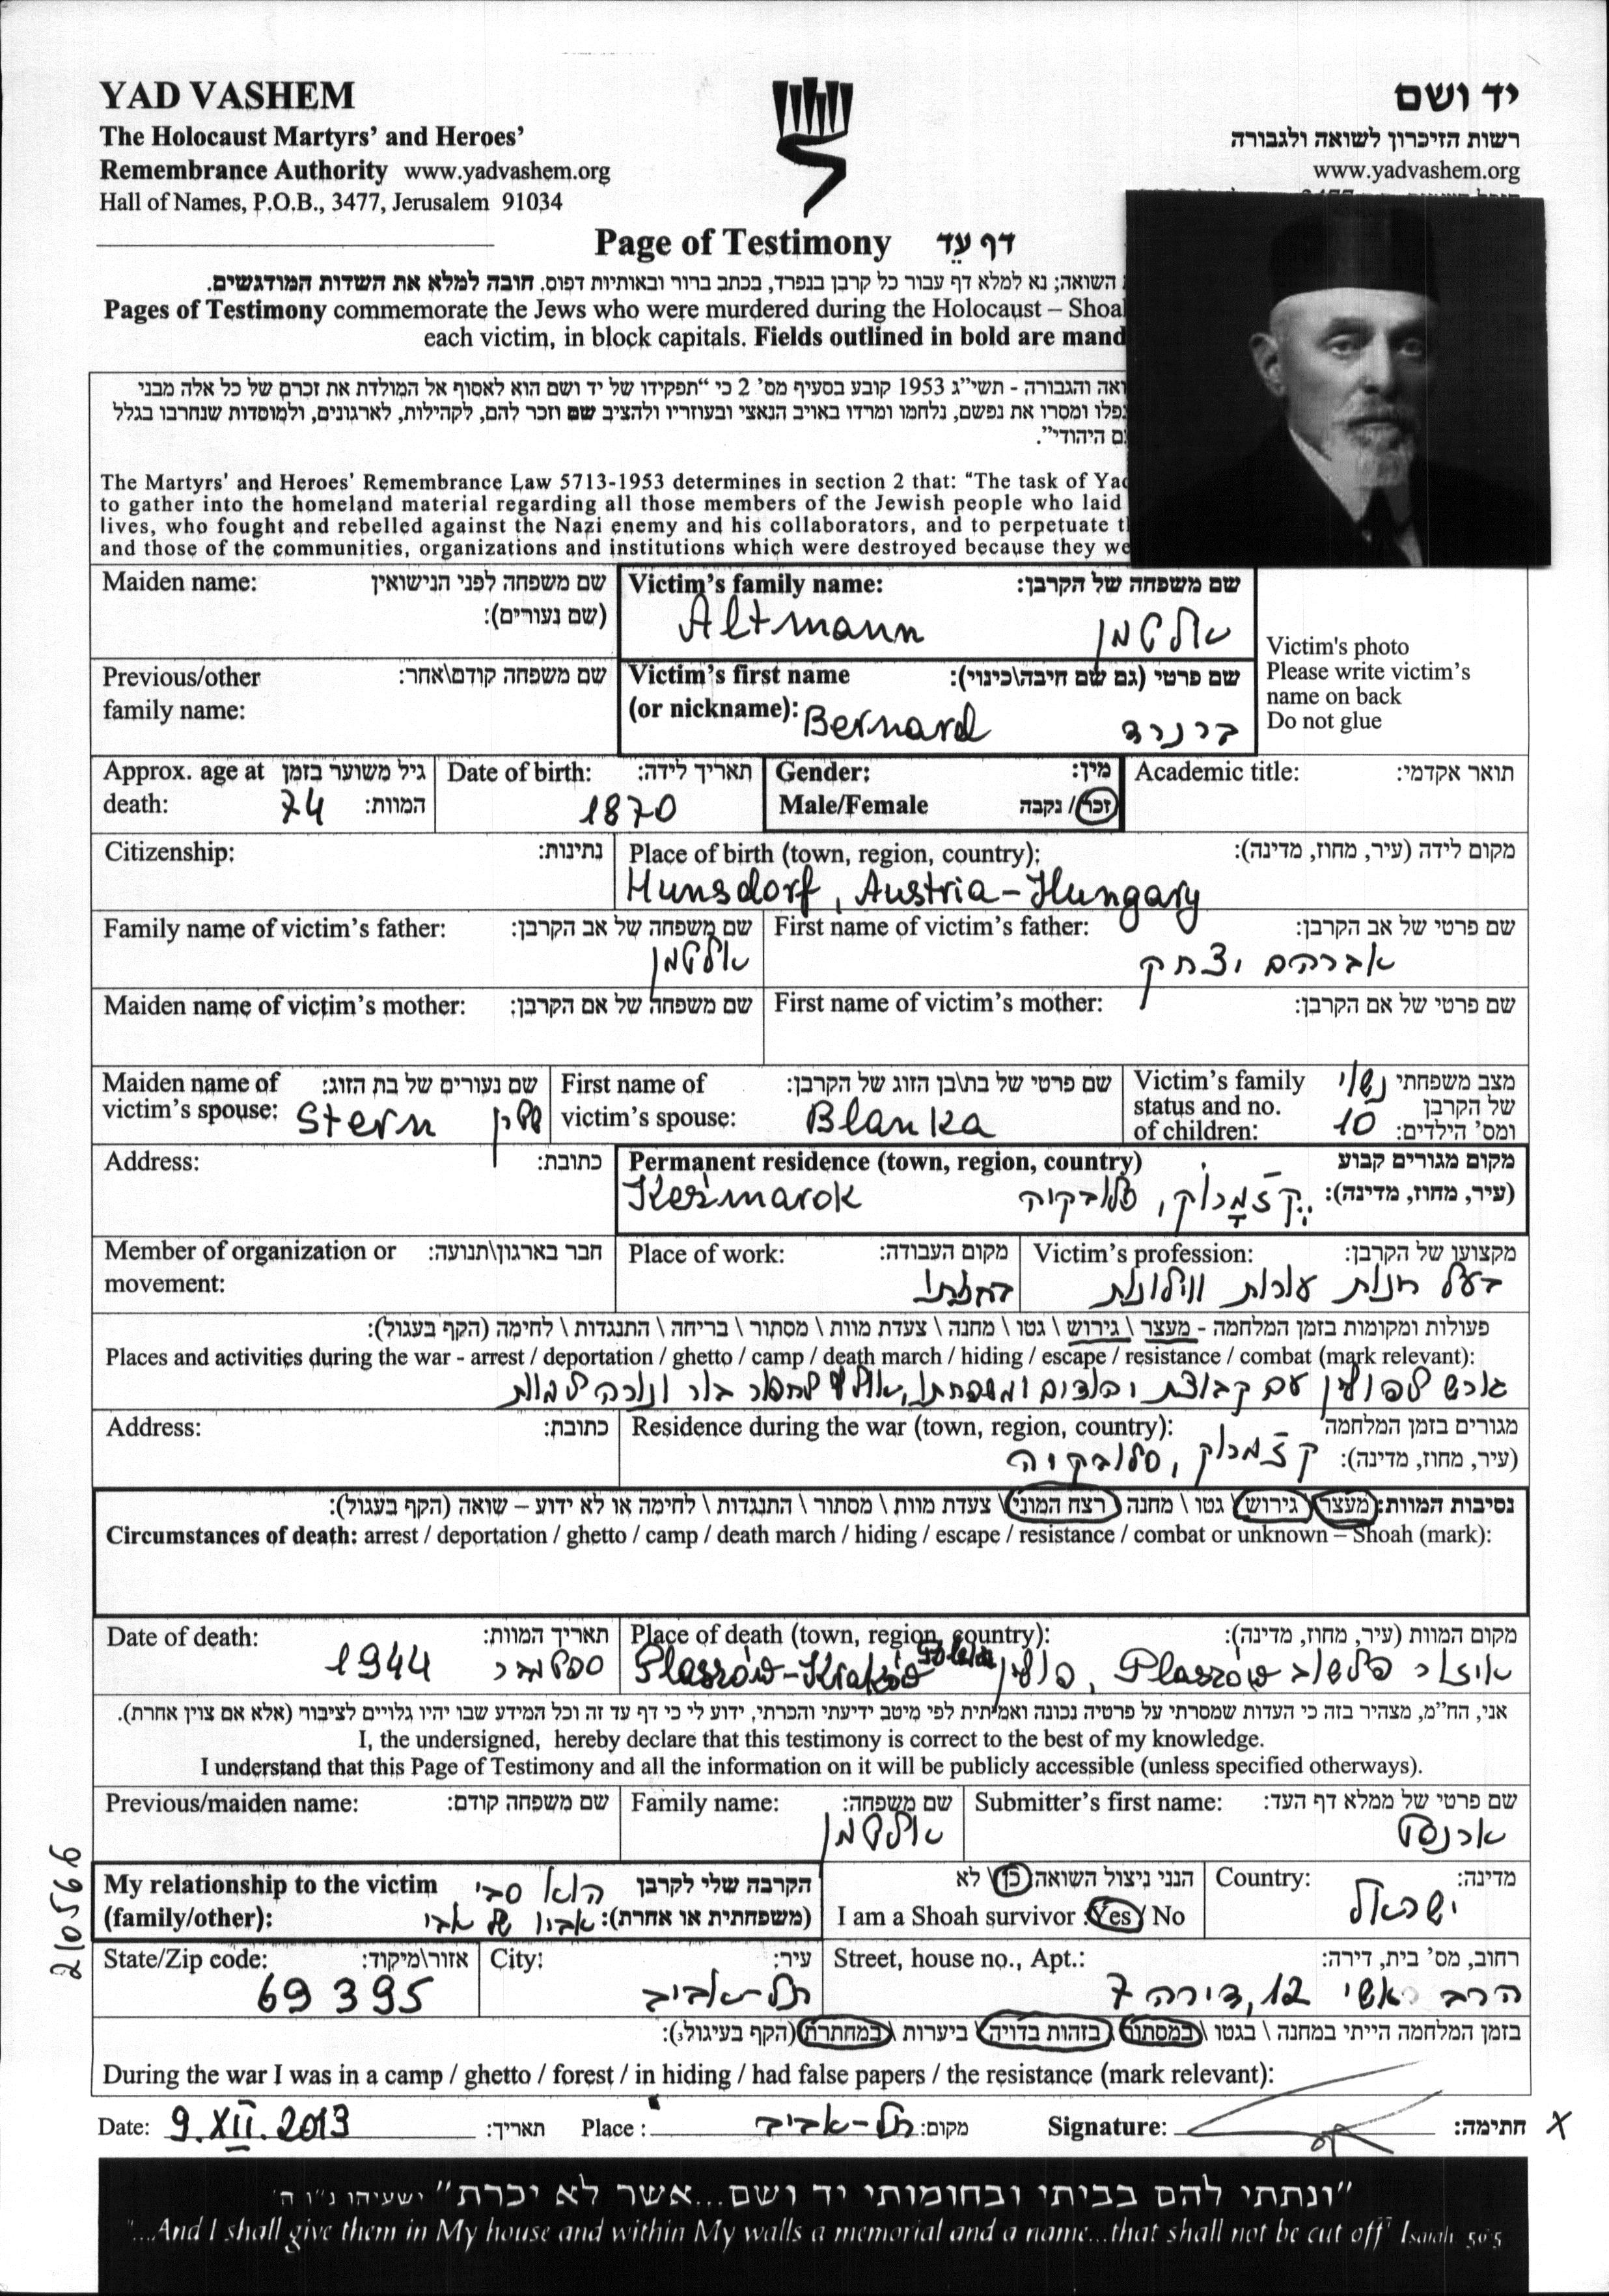 YAD VASHEM
The Holocaust Martyrs' and Heroes'
Remembrance Authority www.yadvashem.org
Hall of Names, P.O.B., 3477, Jerusalem 91034
יד ושם
רשות הזיכרון לשואה ולגבורה
www.yadvashem.org
Page of Testimony דף עֵד
השואה; נא למלא דף עבור כל קרבן בנפרד, בכתב ברור ובאותיות דפוס. חובה למלא את השדות המודגשים.
Pages of Testimony commemorate the Jews who were murdered during the Holocaust – Shoa
each victim, in block capitals. Fields outlined in bold are mand
ואה והגבורה - תשי"ג 1953 קובע בסעיף מס' 2 כי "תפקידו של יד ושם הוא לאסוף אל המולדת את זכרם של כל אלה מבני
נפלו ומסרו את נפשם, נלחמו ומרדו באויב הנאצי ובעוזריו ולהציב שם וזכר להם, לקהילות, לארגונים, ולמוסדות שנחרבו בגלל
ם היהודי".
The Martyrs' and Heroes' Remembrance Law 5713-1953 determines in section 2 that: "The task of Yad
to gather into the homeland material regarding all those members of the Jewish people who laid
lives, who fought and rebelled against the Nazi enemy and his collaborators, and to perpetuate t
and those of the communities, organizations and institutions which were destroyed because they we
Maiden name: שם משפחה לפני הנישואין
(שם נעורים):
Victim's family name: שם משפחה של הקרבן:
Altmann אלטמן
Victim's photo
Please write victim's
name on back
Do not glue
Previous/other שם משפחה קודם\אחר:
family name:
Victim's first name שם פרטי (גם שם חיבה\כינוי):
(or nickname): Bernard ברנרד
Approx. age at גיל משוער בזמן
death: 74 המוות:
Date of birth: תאריך לידה:
1870
Gender: מין:
Male/Female זכר / נקבה
Academic title: תואר אקדמי:
Citizenship: נתינות:
Place of birth (town, region, country): מקום לידה (עיר, מחוז, מדינה):
Hunsdorf, Austria-Hungary
Family name of victim's father: שם משפחה של אב הקרבן:
אלטמן
First name of victim's father: שם פרטי של אב הקרבן:
אברהם יצחק
Maiden name of victim's mother: שם משפחה של אם הקרבן:
First name of victim's mother: שם פרטי של אם הקרבן:
Maiden name of שם נעורים של בת הזוג:
victim's spouse: Stern שטרן
First name of שם פרטי של בת\בן הזוג של הקרבן:
victim's spouse: Blanka
Victim's family מצב משפחתי נשוי
status and no. של הקרבן
of children: 10 ומס' הילדים:
Address: כתובת:
Permanent residence (town, region, country) מקום מגורים קבוע
Kežmarok קז'מרוק, סלובקיה (עיר, מחוז, מדינה):
Member of organization or חבר בארגון\תנועה:
movement:
Place of work: מקום העבודה:
בחנותו
Victim's profession: מקצועו של הקרבן:
בעל חנות עורות ווילונות
פעולות ומקומות בזמן המלחמה - מעצר \ גירוש \ גטו \ מחנה \ צעדת מוות \ מסתור \ בריחה \ התנגדות \ לחימה (הקף בעגול):
Places and activities during the war - arrest / deportation / ghetto / camp / death march / hiding / escape / resistance / combat (mark relevant):
גורש לפולין עם קבוצת יהודים ומשפחתו, אולץ לחפור בור ונורה למוות
Address: כתובת:
Residence during the war (town, region, country): מגורים בזמן המלחמה
קז'מרוק, סלובקיה (עיר, מחוז, מדינה):
נסיבות המוות: מעצר \ גירוש \ גטו \ מחנה \ רצח המוני \ צעדת מוות \ מסתור \ התנגדות \ לחימה או לא ידוע – שואה (הקף בעגול):
Circumstances of death: arrest / deportation / ghetto / camp / death march / hiding / escape / resistance / combat or unknown – Shoah (mark):
Date of death: תאריך המוות:
1944 ספטמבר
Place of death (town, region, country): מקום המוות (עיר, מחוז, מדינה):
Płaszów-Kraków Poland פולין, Płaszów איזור פלשוב
אני, הח"מ, מצהיר בזה כי העדות שמסרתי על פרטיה נכונה ואמיתית לפי מיטב ידיעתי והכרתי. ידוע לי כי דף עד זה וכל המידע שבו יהיו גלויים לציבור (אלא אם צוין אחרת).
I, the undersigned, hereby declare that this testimony is correct to the best of my knowledge.
I understand that this Page of Testimony and all the information on it will be publicly accessible (unless specified otherways).
Previous/maiden name: שם משפחה קודם:
Family name: שם משפחה:
אלטמן
Submitter's first name: שם פרטי של ממלא דף העד:
ארנסט
My relationship to the victim הקרבה שלי לקרבן הוא סבי
(family/other): (משפחתית או אחרת): אביו של אבי
הנני ניצול השואה: כן \ לא
I am a Shoah survivor : Yes / No
Country: מדינה:
ישראל
State/Zip code: אזור\מיקוד:
69395
City: עיר:
תל-אביב
Street, house no., Apt.: רחוב, מס' בית, דירה:
הרב אשי 12, דירה 7
בזמן המלחמה הייתי במחנה \ בגטו \ במסתור \ בזהות בדויה \ ביערות \ במחתרת (הקף בעיגול):
During the war I was in a camp / ghetto / forest / in hiding / had false papers / the resistance (mark relevant):
Date: 9.XII.2013 תאריך: Place : תל-אביב מקום: Signature: חתימה: X
210566
"ונתתי להם בביתי ובחומותי יד ושם...אשר לא יכרת" ישעיהו נ"ו ה'
"...And I shall give them in My house and within My walls a memorial and a name...that shall not be cut off" Isaiah 56:5